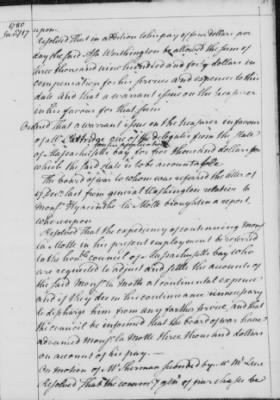 1780
Jan 17 upon,
Resolved That in addition to his pay of four dollars per
day the said Asa Worthington be allowed the sum of
three thousand nine hundred and forty dollars in
compensation for his services and expences to this
day And that a warrant issue on the treasurer
in his favour for that sum
Ordered That a warrant issue on the treasurer in favour
of Mr Partridge one of the delegates from the State
on his application
of Massachusetts bay for five thousand dollars for
which the said state is to be accountable
The board of war to whom was referred the letter of
27 Dec. last from general Washington relative to
Monsr Hyacinthe La Motte brought in a report,
whereupon
Resolved That the expediency of continuing monsr
La Motte in his present employment be referred
to the honble council of Massachusetts bay who
are requested to adjust and settle the accounts of
the said Monsr La Motte at continental expence
and if they deem his continuance unnecessary
to discharge him from any farther service, and that
the council be informed that the board of war have
advanced Monsr La Motte three thousand dollars
on account of his pay.—
On motion of Mr Sherman seconded by Mr McLene
Resolved That the commy genl of purchases be